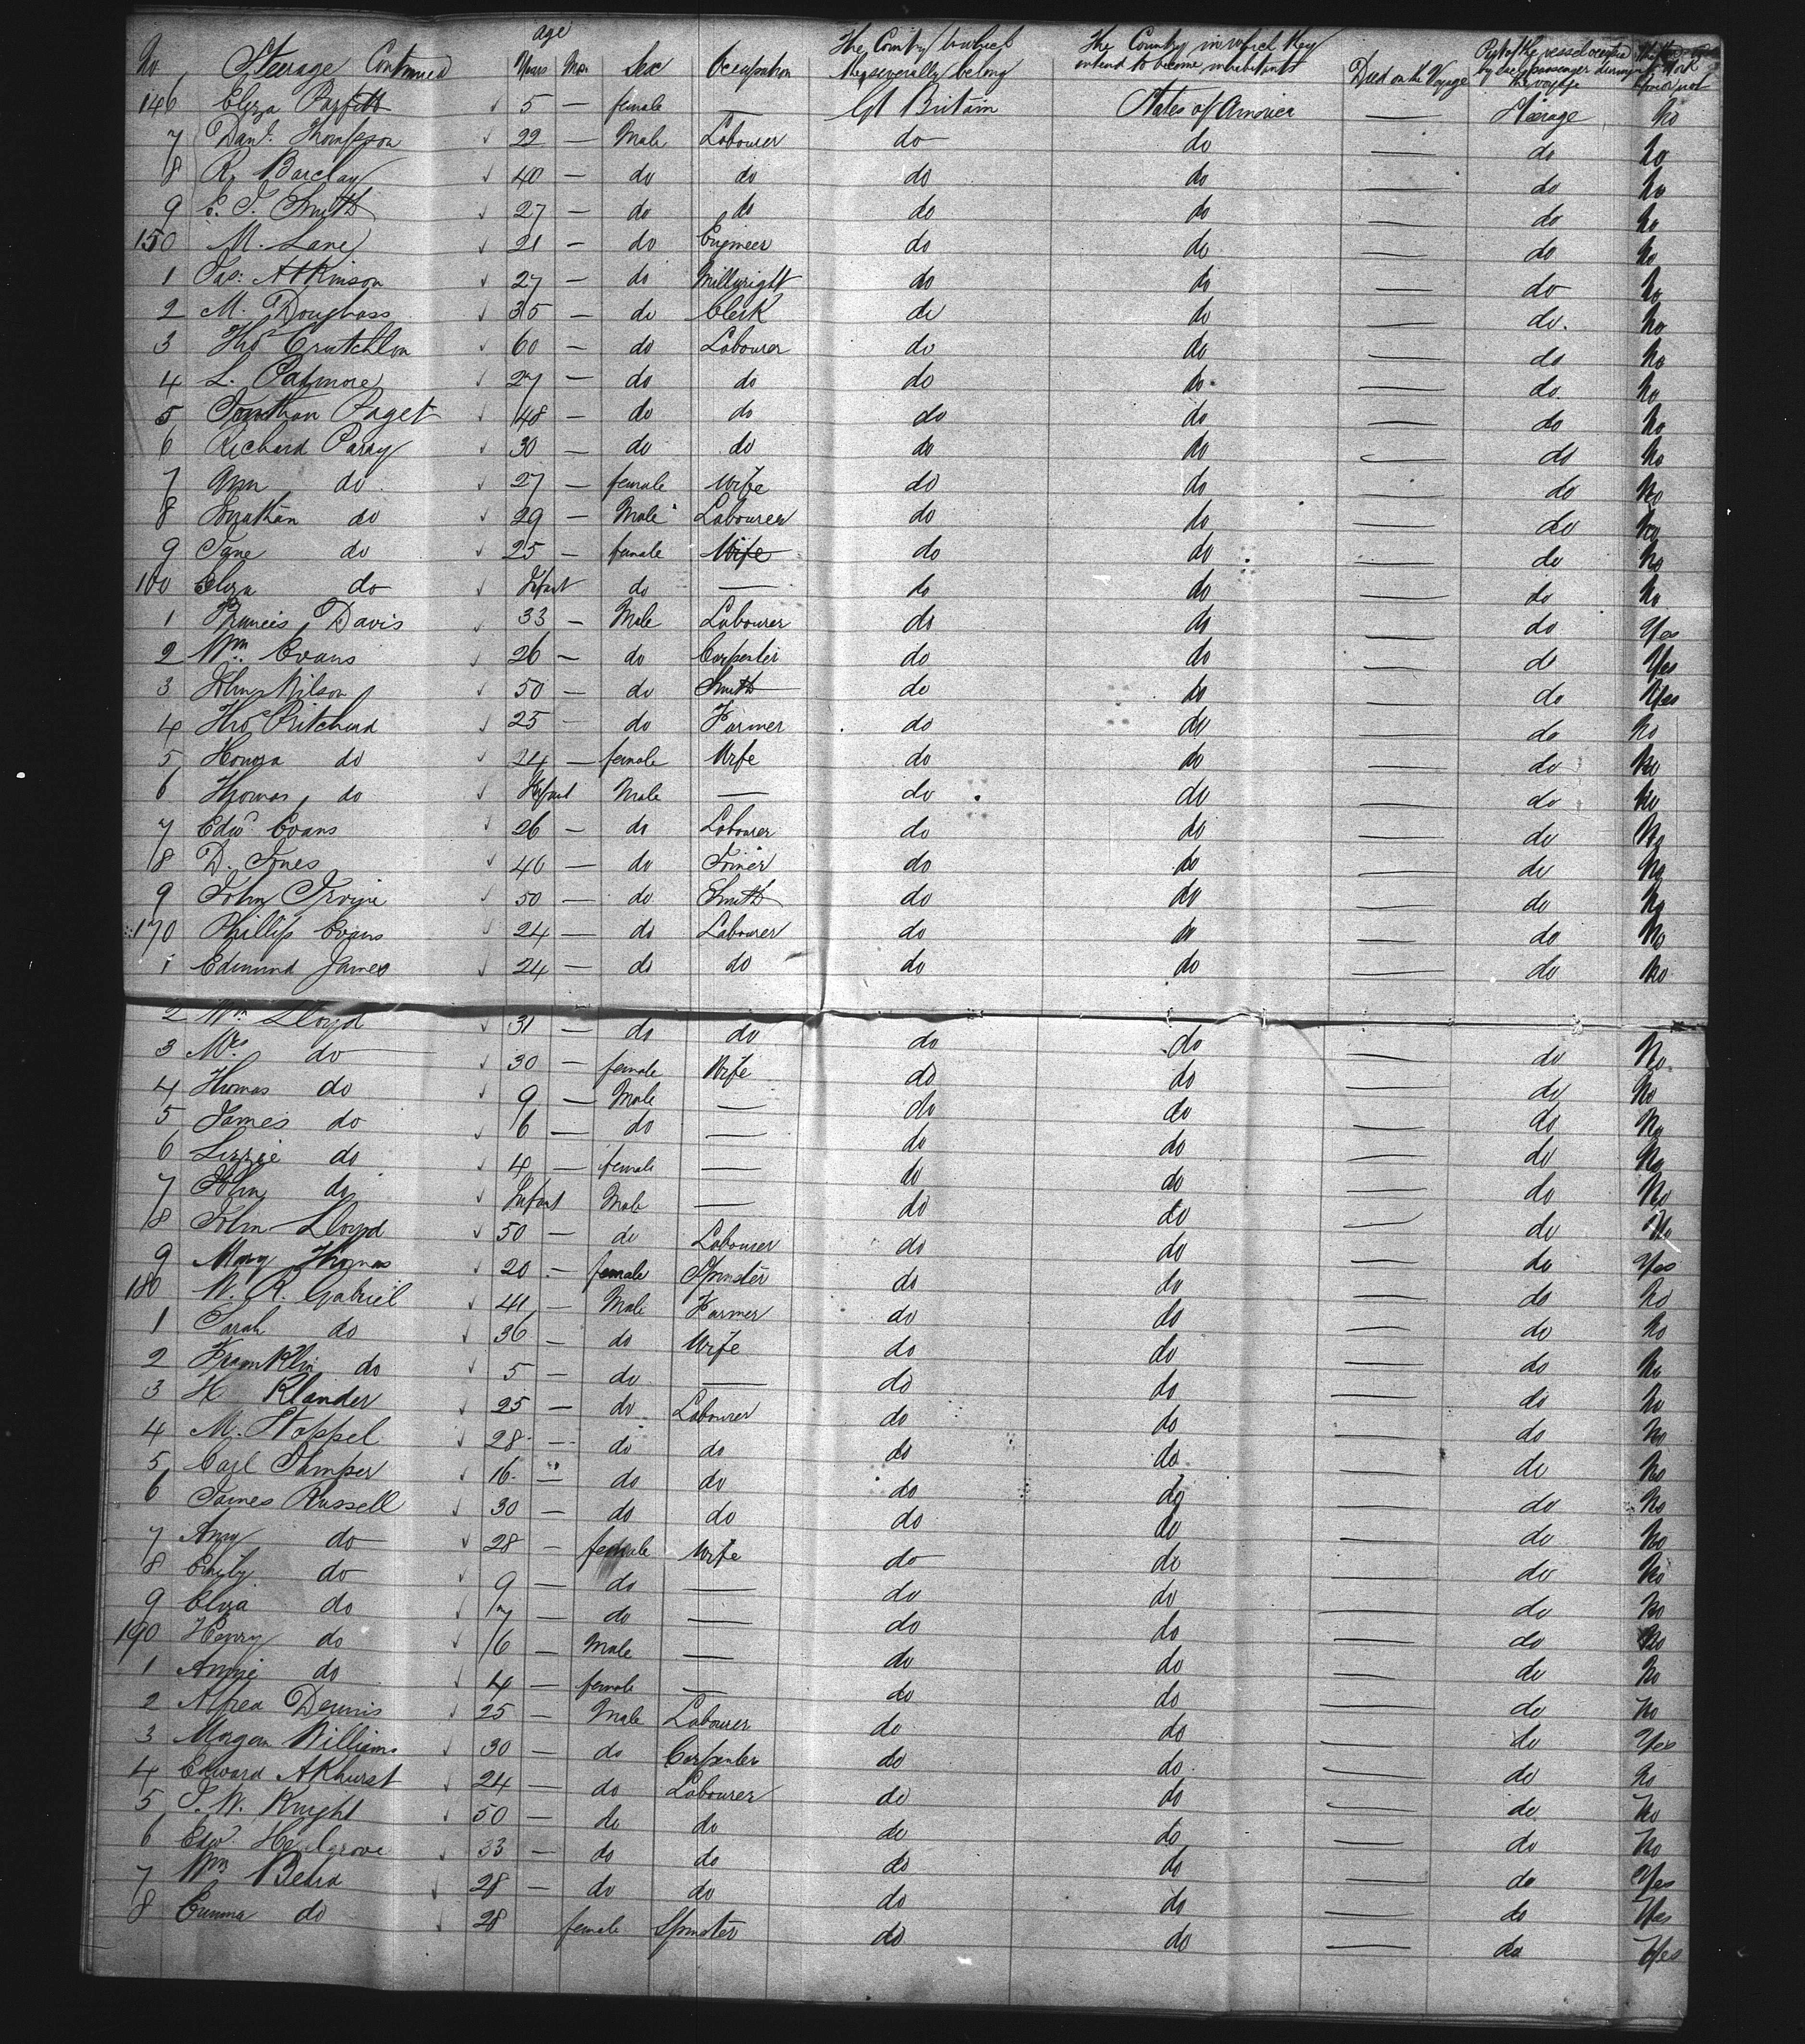 No Steerage Continued age Years Mon Sex Occupation The Country to which they severally belong The Country in which they intend to become inhabitants Died on the Voyage Part of the vessel occupied by each passenger during the voyage
146 Eliza Parfitt 5 — female — Gt Britain States of America — Steerage No
7 Danl. Thompson 22 — Male Labourer do do — do No
8 R. Barclay 40 — do do do do — do No
9 E. J. Smith 27 — do do do do — do No
150 M. Lane 21 — do Engineer do do — do No
1 Jas: Atkinson 27 — do Millwright do do — do No
2 M. Douglass 35 — do Clerk do do — do. No
3 Thos Crutchlon 60 — do Labourer do do — do No
4 L. Padmore 27 — do do do do — do. No
5 Jonathan Paget 48 — do do do do — do No
6 Richard Parry 30 — do do do do — do No
7 Ann do 27 — female Wife do do — do No
8 Jonathan do 29 — Male Labourer do do — do No
9 Jane do 25 — female Wife do do — do No
160 Eliza do Infant do — do do — do No
1 Francis Davis 33 — Male Labourer do do — do Yes
2 Wm. Evans 26 — do Carpenter do do — do Yes
3 John Wilson 50 — do Smith do do — do Yes
4 Thos Pritchard 25 — do Farmer do do — do No
5 Honora do 24 — female Wife do do — do No
6 Thomas do Infant Male — do do — do No
7 Edwd Evans 26 — do Labourer do do — do No
8 D. Jones 40 — do Joiner do do — do No
9 John Irvine 50 — do Smith do do — do No
170 Phillip Evans 24 — do Labourer do do — do No
1 Edmund James 24 — do do do do — do No
2 Wm Lloyd 31 — do do do do — do No
3 Mrs do 30 — female Wife do do — do No
4 Thomas do 9 — Male — do do — do No
5 James do 6 — do — do do — do No
6 Lizzie do 4 — female — do do — do No
7 John do Infant Male — do do — do No
8 John Lloyd 50 — do Labourer do do — do Yes
9 Mary Thomas 20 — female Spinster do do — do No
180 W. R. Gabriel 41 — Male Farmer do do — do No
1 Sarah do 36 — do Wife do do — do No
2 Franklin do 5 — do — do do — do No
3 H Klander 25 — do Labourer do do — do No
4 M. Stoppel 28 — do do do do — do No
5 Carl Samper 16 — do do do do — do No
6 James Russell 30 — do do do do — do No
7 Amy do 28 — female Wife do do — do No
8 Emily do 9 — do — do do — do No
9 Eliza do 7 — do — do do — do No
190 Henry do 6 — Male — do do — do No
1 Annie do 4 — female — do do — do No
2 Alfred Dennis 25 — Male Labourer do do — do Yes
3 Morgan Williams 30 — do Carpenter do do — do No
4 Edward Akhurst 24 — do Labourer do do — do No
5 J. W. Knight 50 — do do do do — do No
6 Edw. Hazelgrove 33 — do do do do — do Yes
7 Wm 28 — do do do do — do Yes
8 Emma do 28 female Spinster do do — do Yes